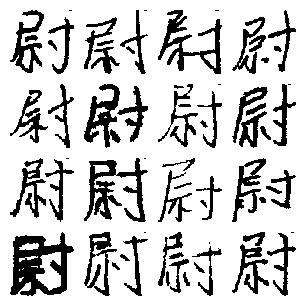 尉尉尉尉
尉尉尉尉
尉尉尉尉
尉尉尉尉